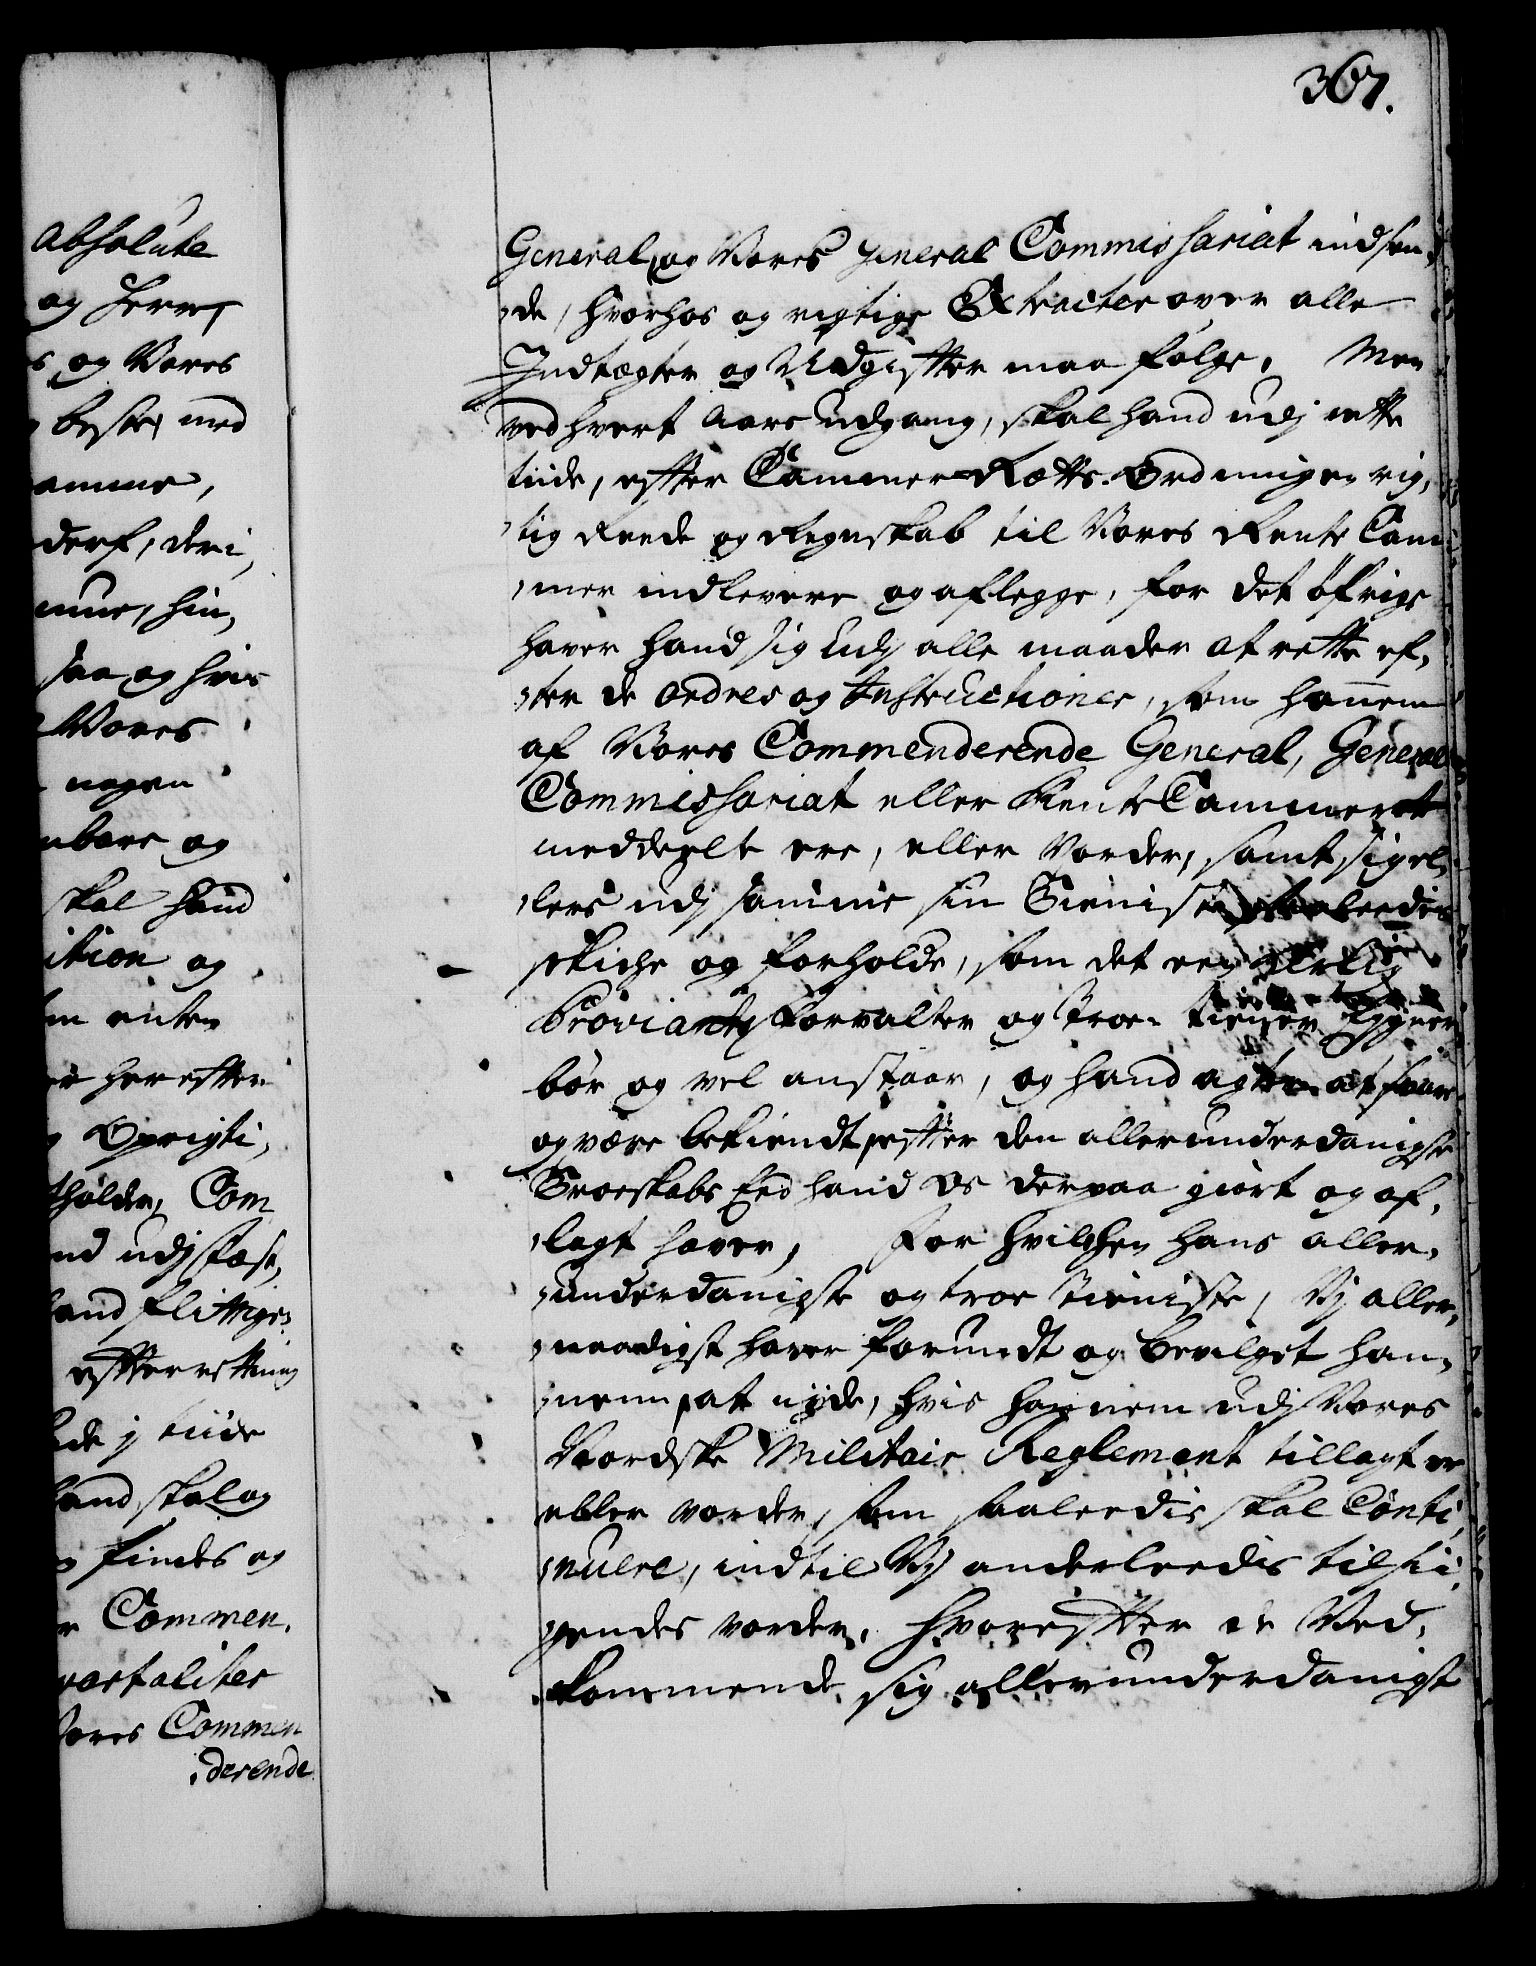 absolute
og Herre,
s og Vores
beste, med
amme,
derf, deri,
nme, hin,
saa og hvis
Vores
nogen
nbare og
skal hand
ition og
m enten
herefter
Oprigti,
tholder, Com
nd udj stæst,
and flittige
efterretning
de j tiide
and skal og
findes og
r Commen,
vartaliter
Vores Commen
derende
367.
General, og Vores General Commissariat indsen,
,de, hvorhos og rigtige Extracter over alle
Indtægter og Udgifter maa følge, Men
ved hvert Aars Udgang, skal hand udj rette
tiide, efter Cammer-Rætts Ordningen rig,
,tig Reede og Regnskab til Vores Rente Cam
,mer indlevere og aflegge, for det öfrige
haver hand sig udj alle maader at rette ef,
,ter de ordres og Instructioner, som hannem
af Vores Commenderende General, General
Commissariat eller RenteCammeret
meddeelte ere, eller vorder, samt sig el,
,lers udj samme sin Tieniste saaleedis
skiche og forholde, som det een ærlig
Proviant Forvalter og Troe tiener egner
bör og vel anstaar, og hand agter at svare
og være bekiendt, efter den allerunderdanigste
Troeskabs Eed hand Os derpaa giort og af,
,lagt haver, For hvilchen hans aller,
,underdanigste og troe tieniste, Vj aller,
,naadigst haver forundt og bevilget han,
,nem, at nyde, hvis hannem udj Vores
Nordske Militair Reglement tillagt er
eller vorder, som saaleedis skal Conti,
,nuere, indtil Vj anderleedis tilsii,
,gendes vorder, Hvorefter de Ved,
,kommende sig allerunderdanigst